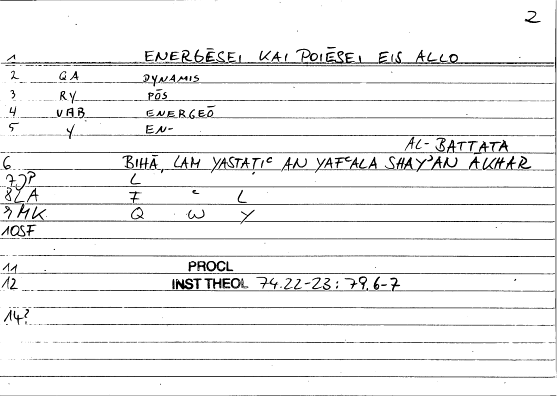 2
1 ENERGĒSEI KAI POIĒSEI EIS ALLO
2 GA DYNAMIS
3 RY PŌS
4 VAB ENERGEŌ
5 Y EN-
AL-BATTATA
6 BIHĀ, LAM YASTAṬIᶜ AN YAFᶜALA SHAYʾAN AKHAR
7 JP L
8 LA F ᶜ L
9 MK Q W Y
10 SF
11 PROCL
12 INST THEOL 74.22-23; 79.6-7
14?